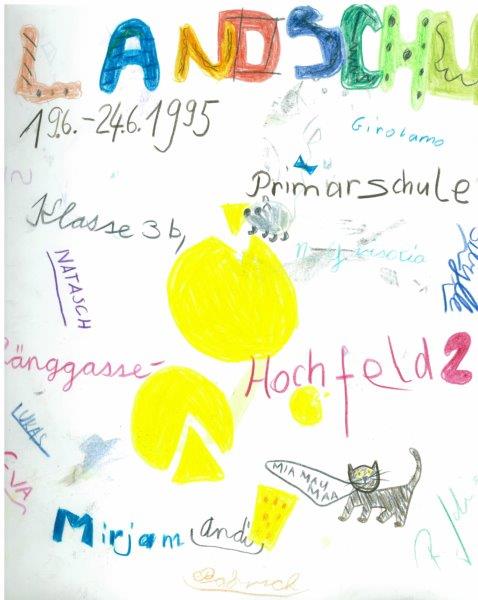 LANDSCHU
19.6.-24.6.1995
Girolamo
Primarschule
Klasse 3b,
NATASCH
Länggasse-
Hochfeld 2
LUKAS
EVA
MIA MAU
MAA
Mirjam
andi